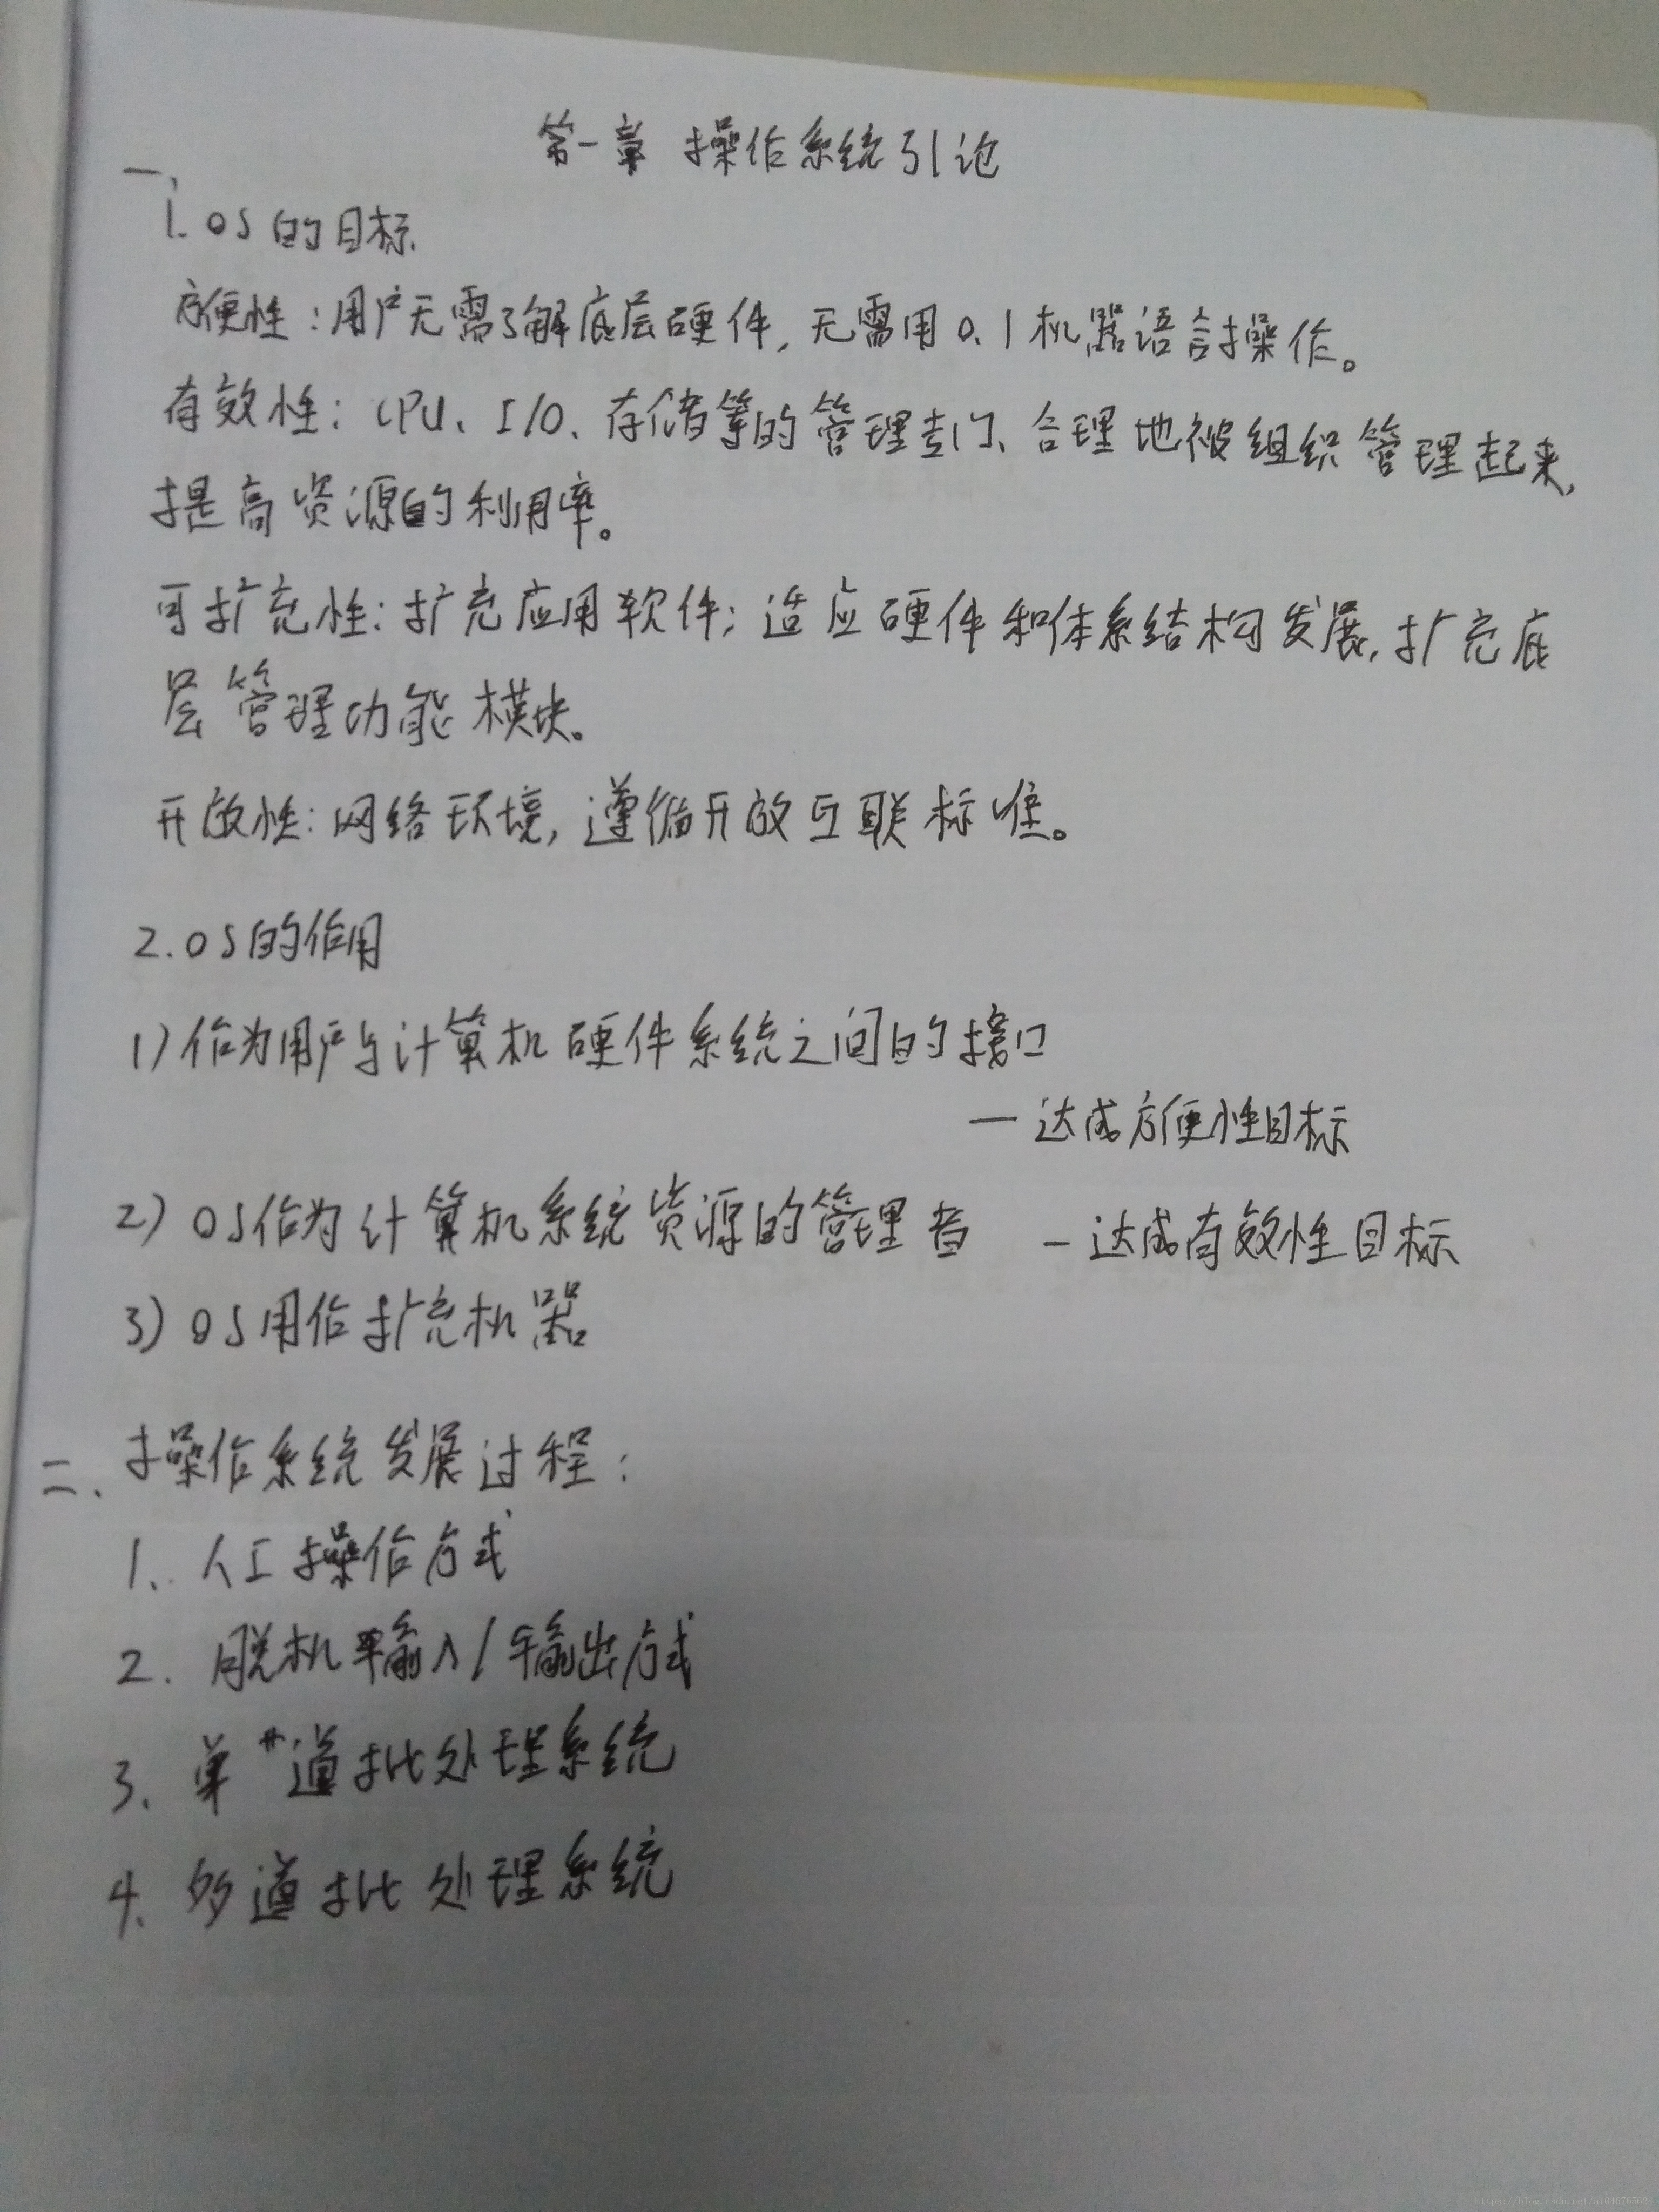 第一章 操作系统引论
一、
1. OS的目标
方便性：用户无需了解底层硬件，无需用0、1机器语言操作。
有效性：CPU、I/O、存储等的管理专门、合理地被组织管理起来，
提高资源的利用率。
可扩充性：扩充应用软件；适应硬件和体系结构发展，扩充底
层管理功能模块。
开放性：网络环境，遵循开放互联标准。
2. OS的作用
1) 作为用户与计算机硬件系统之间的接口
— 达成方便性目标
2) OS作为计算机系统资源的管理者 — 达成有效性目标
3) OS用作扩充机器
二、操作系统发展过程：
1、人工操作方式
2. 脱机输入/输出方式
3、单道批处理系统
4、多道批处理系统